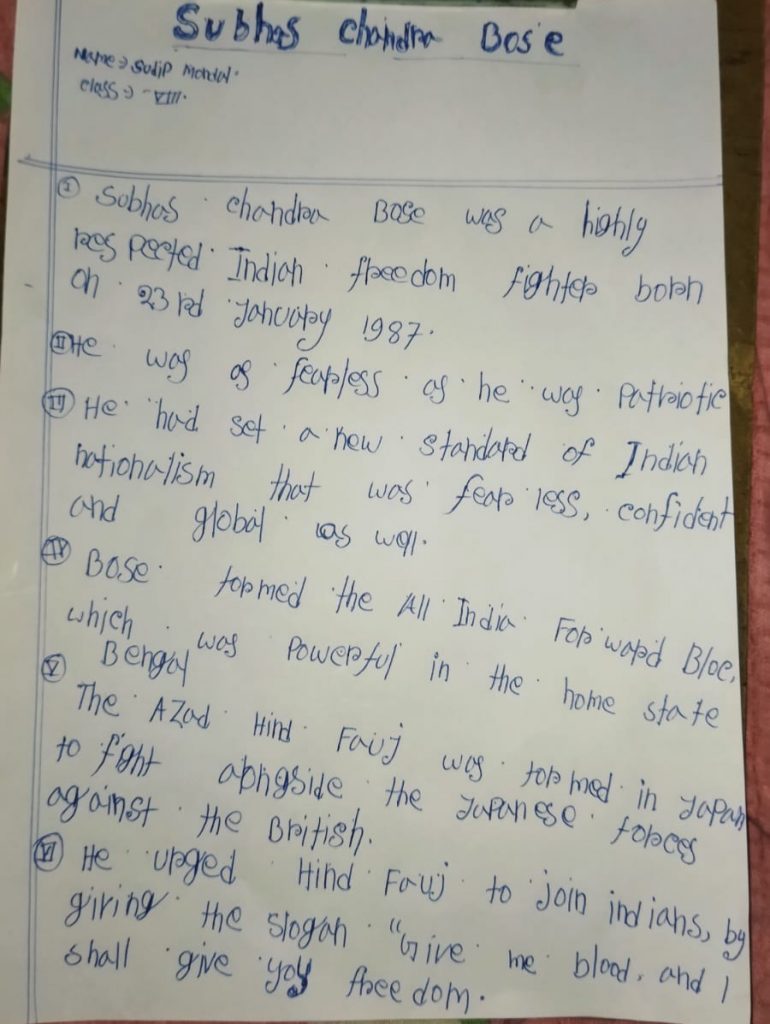 Subhas Chandra Bose
Name → Sudip Mondal.
Class → VIII.
I Subhas Chandra Bose was a highly
respected Indian freedom fighter born
on 23rd January 1987.
II He was as fearless as he was Patriotic
III He had set a new standard of Indian
nationalism that was fear less, confident
and global as well.
IV Bose formed the All India Forward Bloc,
which was Powerful in the home state
Bengal
V The Azad Hind Fauj was formed in Japan
to fight alongside the Japanese forces
against the British.
VI He urged Hind Fauj to join indians, by
giving the slogan "Give me blood, and I
shall give you freedom.